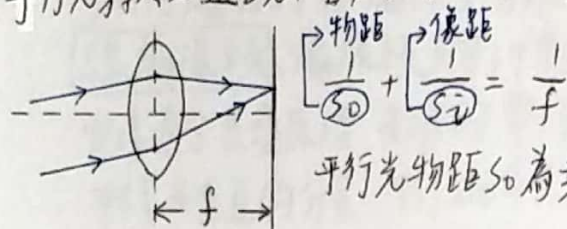 物距 像距
1/So + 1/Si = 1/f
平行光物距So為
f